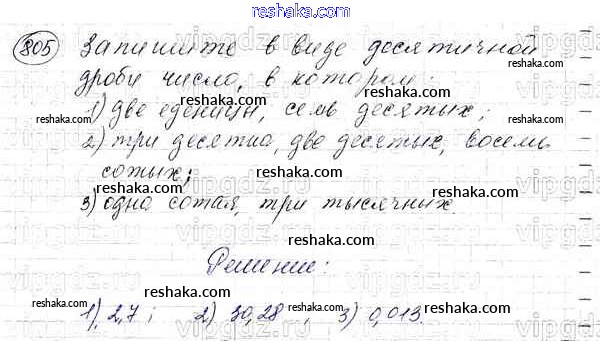 reshaka.com
805 Запишите в виде десятичной
дроби число, в котором:
reshaka.com
1) две еденицы, семь десятых;
reshaka.com reshaka.com
2) три десятка, две десятых, восемь
сотых;
reshaka.com reshaka.com
3) одна сотая, три тысячных.
reshaka.com
Решение:
reshaka.com reshaka.com reshaka.com
1) 2,7; 2) 30,28, 3) 0,013.
reshaka.com